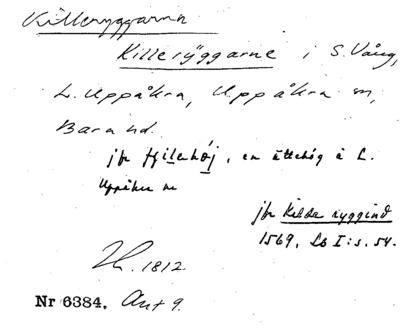 Killeryggarna
Killerÿggarne i S. Vång,
L. Uppåkra, Uppåkra sn,
Bara hd.
jfr fjilehøj, en ättehög å L.
Uppåkra m
jfr Kelde ryggind
1569, Lb I: s. 54.
1812
Nr 6384. Ant 9.